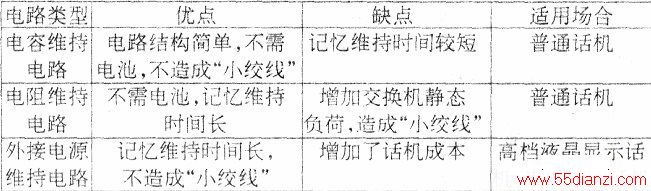 电路类型 优点 缺点 适用场合
电容维持 电路结构简单,不需 记忆维持时间较短 普通话机
电路 电池,不造成“小绞线”
电阻维持 不需电池,记忆维持 增加交换机静态 普通话机
电路 时间长 负荷,造成“小绞线”
外接电源 记忆维持时间长, 增加了话机成本 高档液晶显示话
维持电路 不造成“小绞线”
www.55dianzi.com